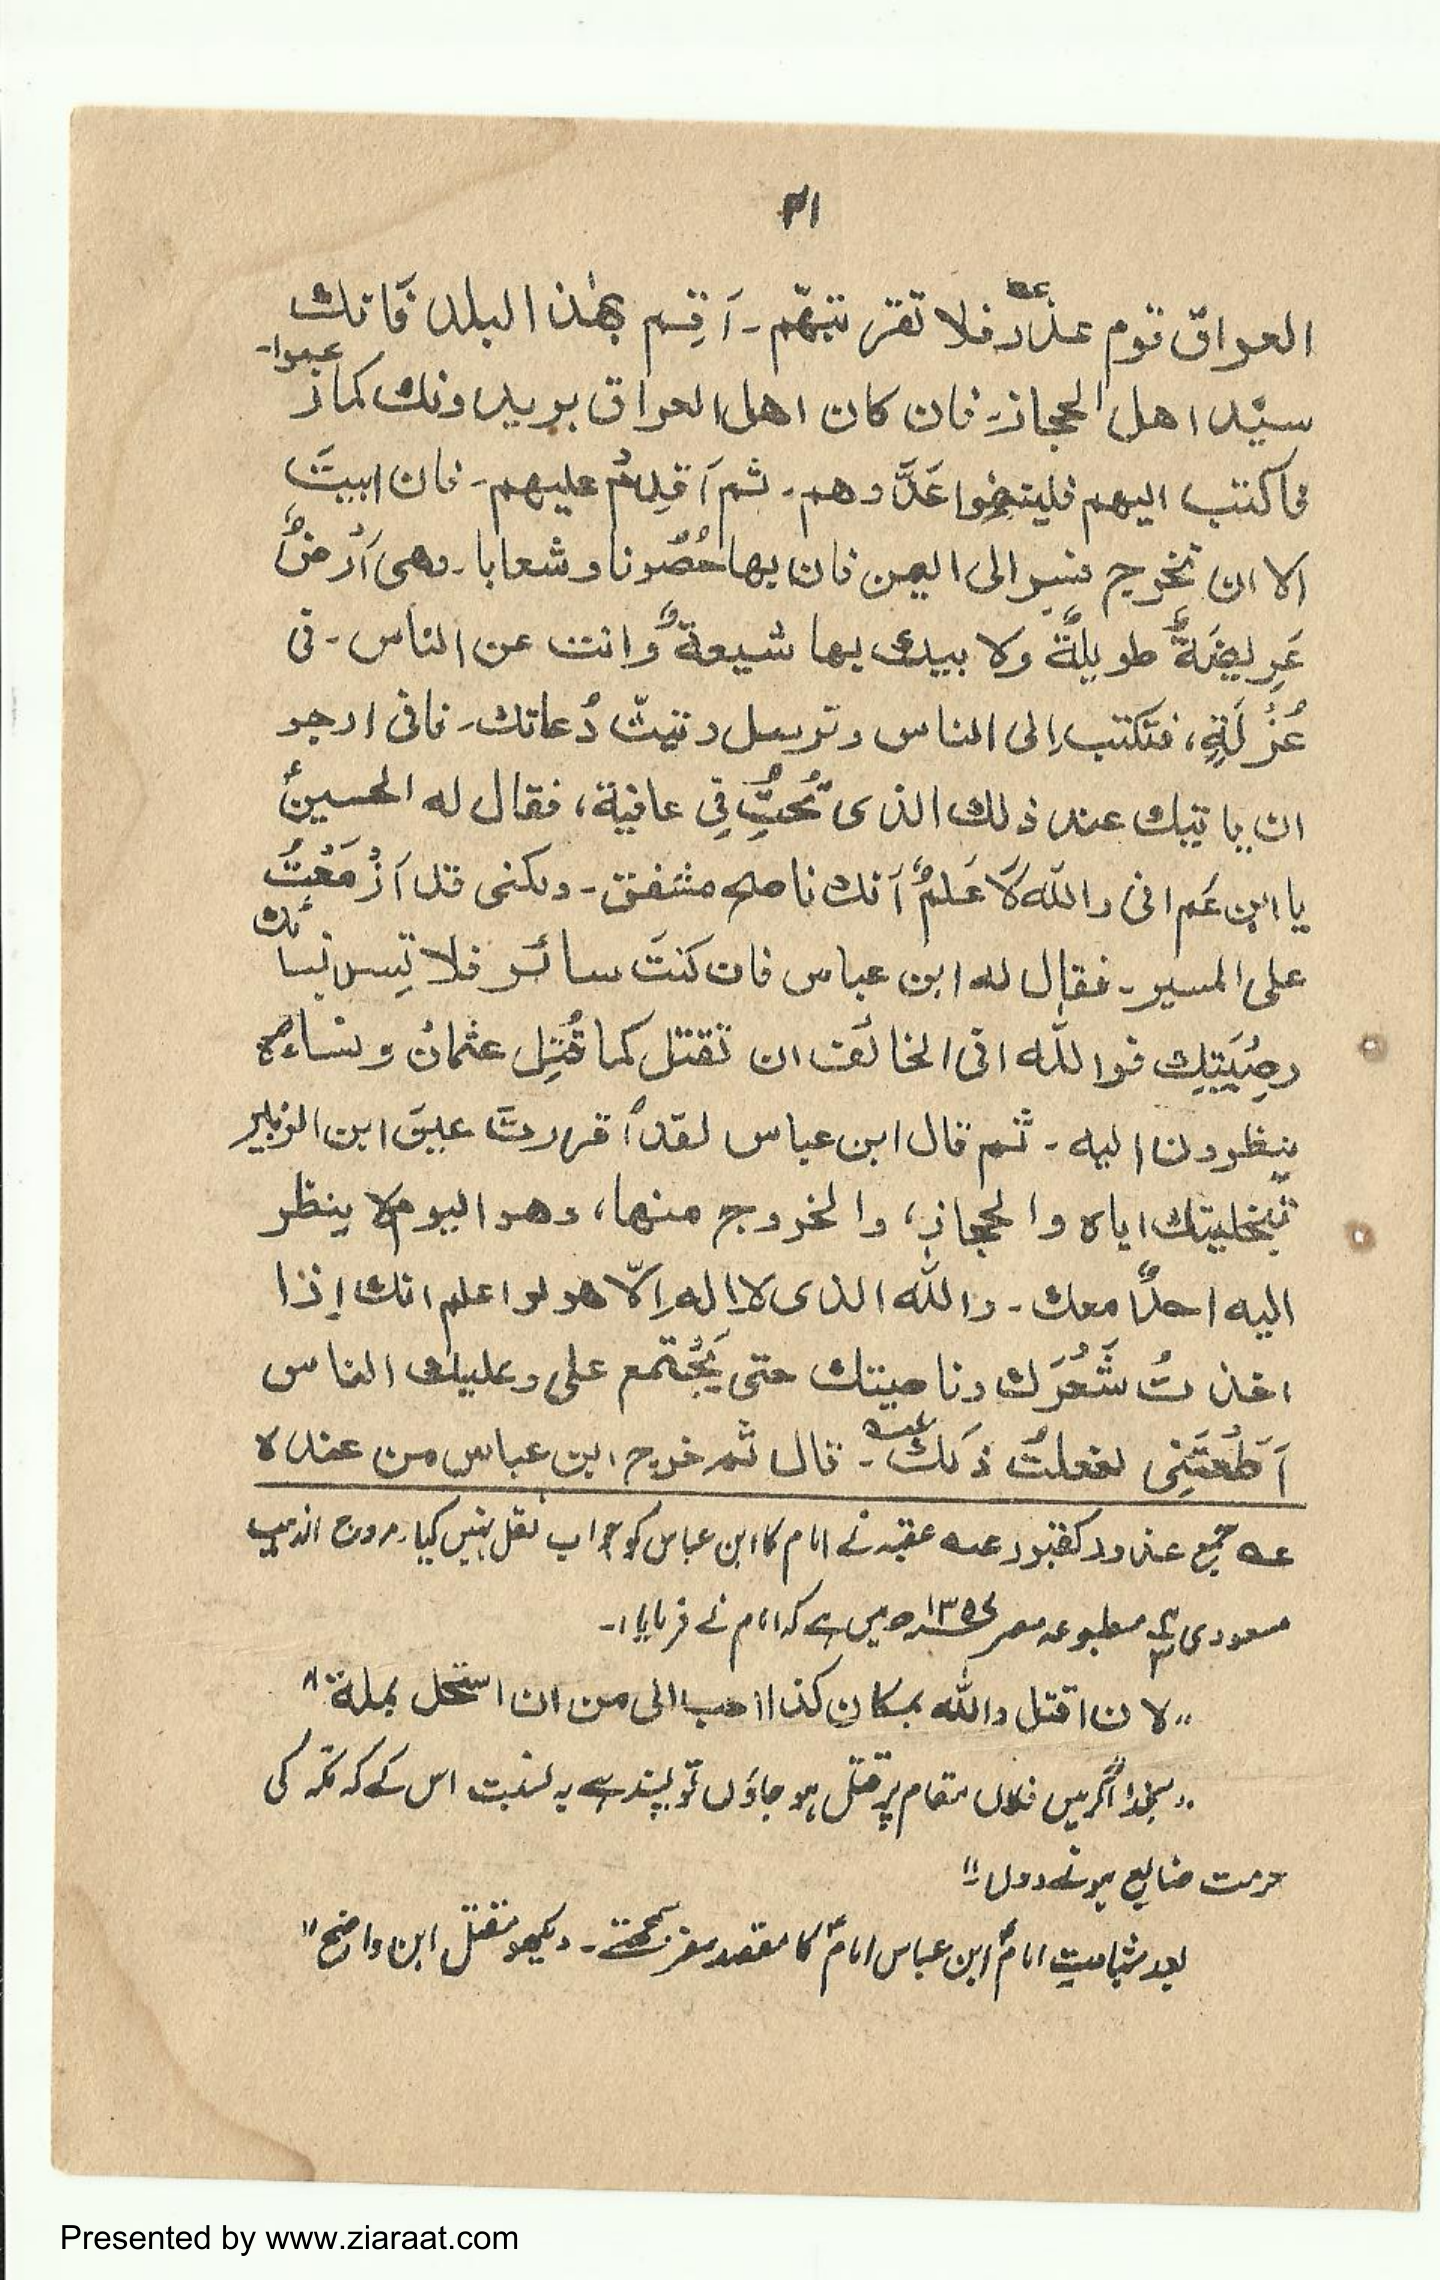 ٣١
العراق قوم غدّر عـه فلا تقر تبهّم۔ اَقِم بهٰذ البلد فَانك
سيّد اهل الحجاز۔ فان كان اهل العراق يريدونك كما زعموا۔
فاكتب اليهم فلينفِوا عَدَّوهم۔ ثم اَقدِمُ عليهم۔ فان ابيتَ
الا ان تخرج فسِر الى اليمن فان بها حُصُونا وشعابا۔ وهى اَرْضٌ
عَرِيضَةٌ طويلةٌ ولابيك بها شيعةٌ وانت عن الناس۔ فى
عُزْلَةٍ، فتكتب اِلى الناس وترسل وتبثّ دُعاتك۔ فانى ارجو
ان ياتيك عند ذلك الذى تُحبُّ فِى عافية، فقال له الحسينؑ
يا ابن عَم انى والله لَاعَلمُ اَنك ناصح مشفق۔ ولكنى قد اَزْمَعْتُ
على المسير۔ فقال له ابن عباس فان كنتَ سائر فلا تِسر نسائك
وصِبيَتِك فوالله انى الخائف ان تقتل كما قُتِل عثمان ونساءه
ينظرون اليه۔ ثم قال ابن عباس لقد اَقررتَ عين ابن الزبير
بتخليتك اياه والحجاز، والخروج منها، وهو اليوم لا ينظر
اليه احدٌ معك۔ والله الذى لا اله اِلّا هو لو اعلم انك اِذا
اخذتُ شَعُرَك وناصيتك حتى يَجُتمع على وعليك الناس
اَطَعُتَنِى لفعلتُ ذَلك عـه۔ قال ثم خرج ابن عباس من عنده
عـه جمع غدور كغفور عـه عقبہ نے امام کا ابن عباس کو جواب نقل نہیں کیا۔ مروج الذہب
مسعودی مطبوعہ مصر ھ میں ہے کہ امام نے فرمایا۔
"لان اقتل والله بمكان كذا احب الى من ان استحل بمكة"
"بخدا اگر میں فلاں مقام پر قتل ہو جاؤں تو پسند ہے بہ نسبت اس کے کہ مکہ کی
حرمت ضایع ہونے دوں"
بعد شہادتِ امامؑ ابن عباس امامؑ کا مقصد سفر سمجھے۔ دیکھو مقتل ابن واضح"
Presented by www.ziaraat.com